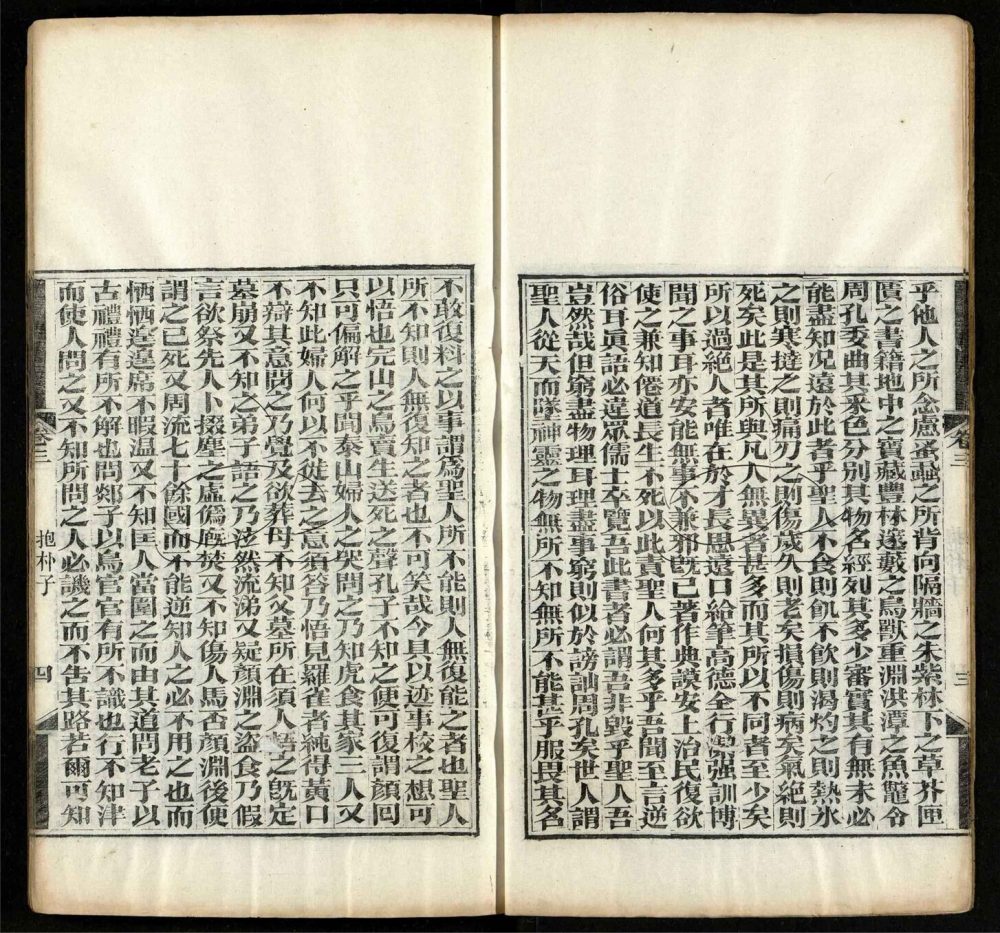 乎他人之所念慮蚤蝨之所背向隔牆之朱紫林下之草芥匣
匱之書籍地中之寶藏豐林邃藪之鳥獸重淵洪潭之魚鼈令
周孔委曲其采色分別其物名經列其多少審實其有無未必
能盡知况遠於此者乎聖人不食則飢不飲則渴灼之則熱氷
之則寒撻之則痛刃之則傷歲久則老矣損傷則病矣氣絕則
死矣此是其所與凡人無異者甚多而其所以不同者至少矣
所以過絕人者唯在於才長思遠口給筆高德全行㓗强訓博
聞之事耳亦安能無事不兼邪既已著作典謨安上治民復欲
使之兼知僊道長生不死以此責聖人何其多乎吾聞至言逆
俗耳眞語必違眾儒士卒覽吾此書者必謂吾非毀乎聖人吾
豈然哉但窮盡物理耳理盡事窮則似於謗訕周孔矣世人謂
聖人從天而墜神靈之物無所不知無所不能甚乎服畏其名
卷三
三
不敢復料之以事謂爲聖人所不能則人無復能之者也聖人
所不知則人無復知之者也不可笑哉今具以迹事校之想可
以悟也完山之鳥賣生送死之聲孔子不知之便可復謂顔囘
只可偏解之乎聞泰山婦人之哭問之乃知虎食其家三人又
不知此婦人何以不徙去之意須答乃悟見羅雀者純得黃口
不辯其意問之乃覺及欲葬母不知父墓所在須人語之旣定
墓崩又不知之弟子語之乃泫然流涕又疑顔淵之盜食乃假
言欲祭先人卜掇塵之虛僞廐焚又不知傷人馬否顔淵後便
謂之已死又周流七十餘國而不能逆知人之必不用之也而
恓恓遑遑席不暇温又不知匡人當圍之而由其道問老子以
古禮禮有所不解也問郯子以鳥官官有所不識也行不知津
而使人問之又不知所問之人必譏之而不告其路若爾可知
卷三
抱朴子
四